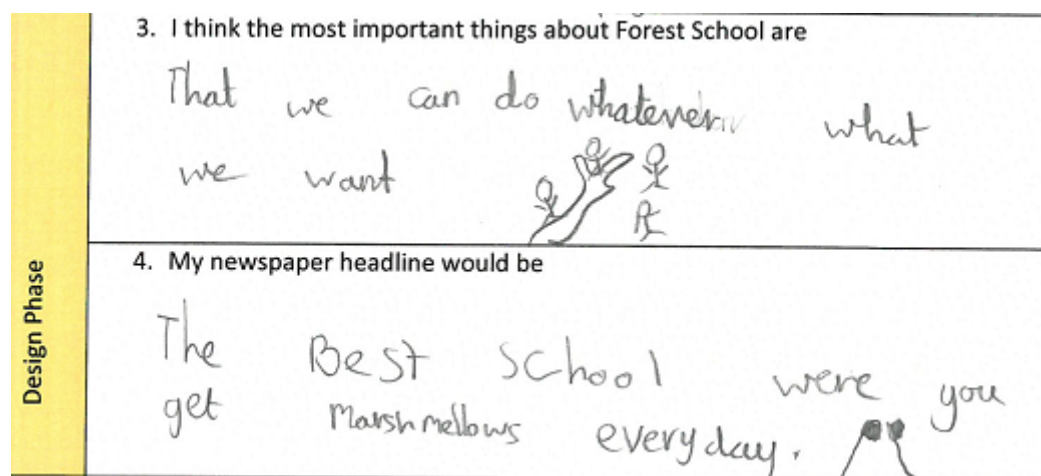 3. I think the most important things about Forest School are
That we can do whatever what
we want
4. My newspaper headline would be
The Best School were you
get Marshmellows everyday.
Design Phase